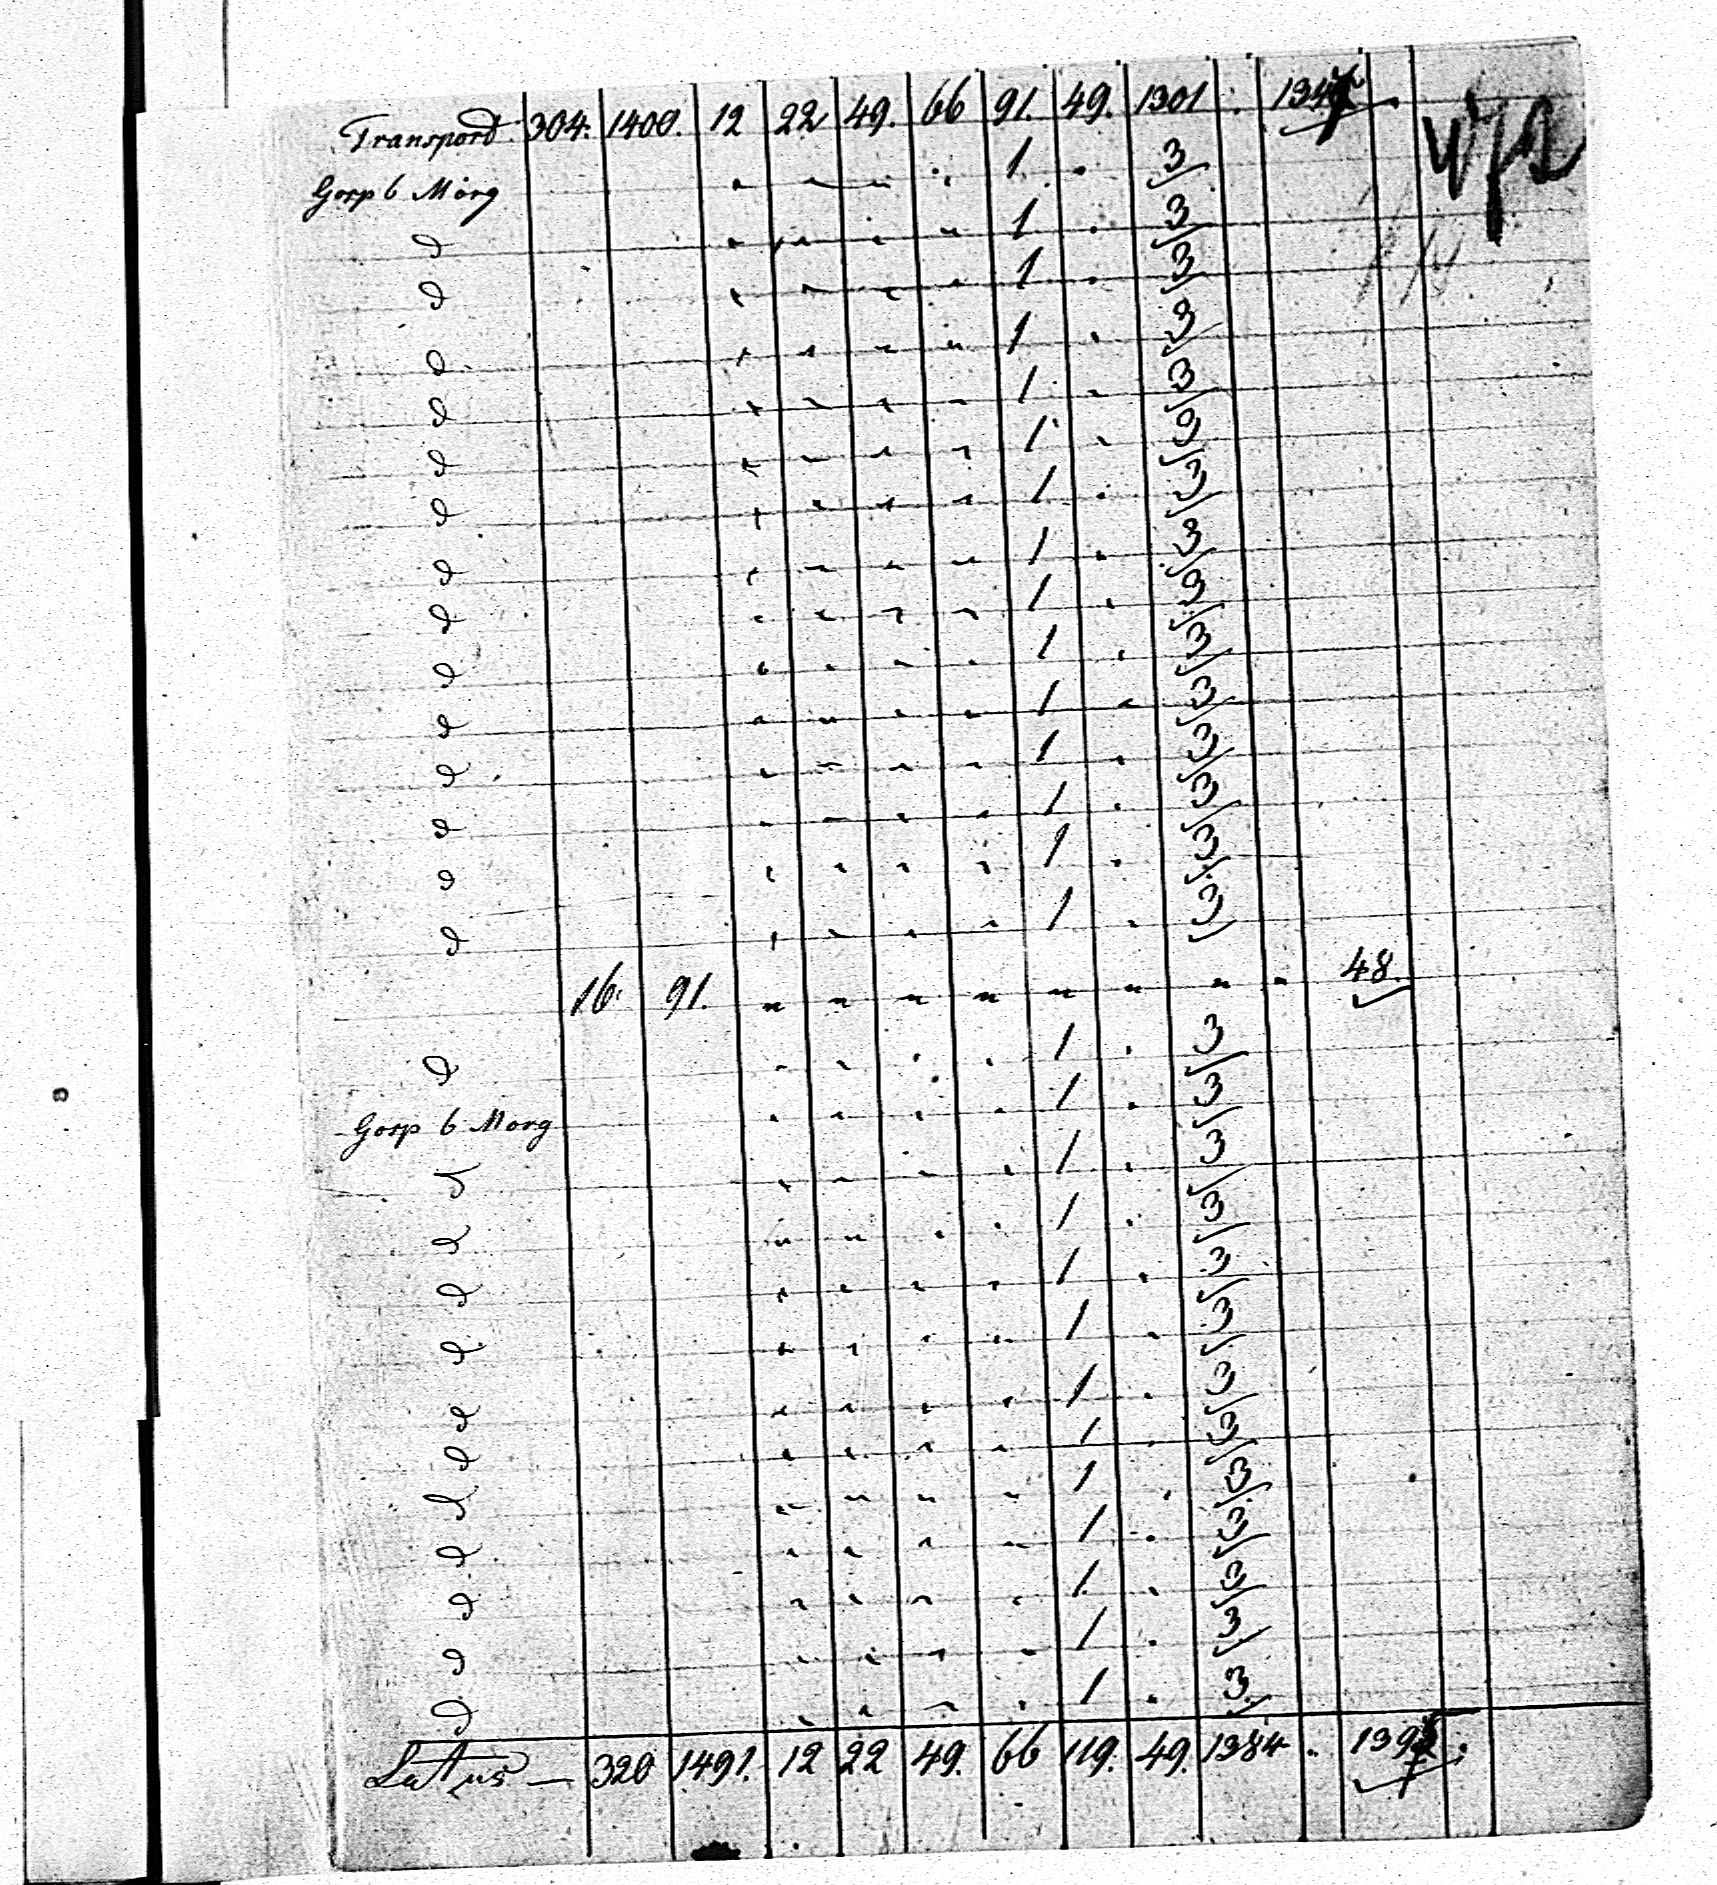 Transpord 304. 1400. 12 22 49. 66 91. 49. 1301
Gosp 6 Morg 1 3
d 1 3
d 1 3
d 1 3
d 1 3
d 1 3
d 1 3
d 1 3
d 1 3
d 1 3
d 1 3
d 1 3
d 1 3
d 1 3
d 1 3
16. 91. " " " " " " " " 48.
d 1 3
Gosp 6 Morg 1 3
d 1 3
d 1 3
d 1 3
d 1 3
d 1 3
d 1 3
d 1 3
d 1 3
d 1 3
d 1 3
d 1 3
Latus — 320 1491. 12 22 49. 66 119. 49. 1384